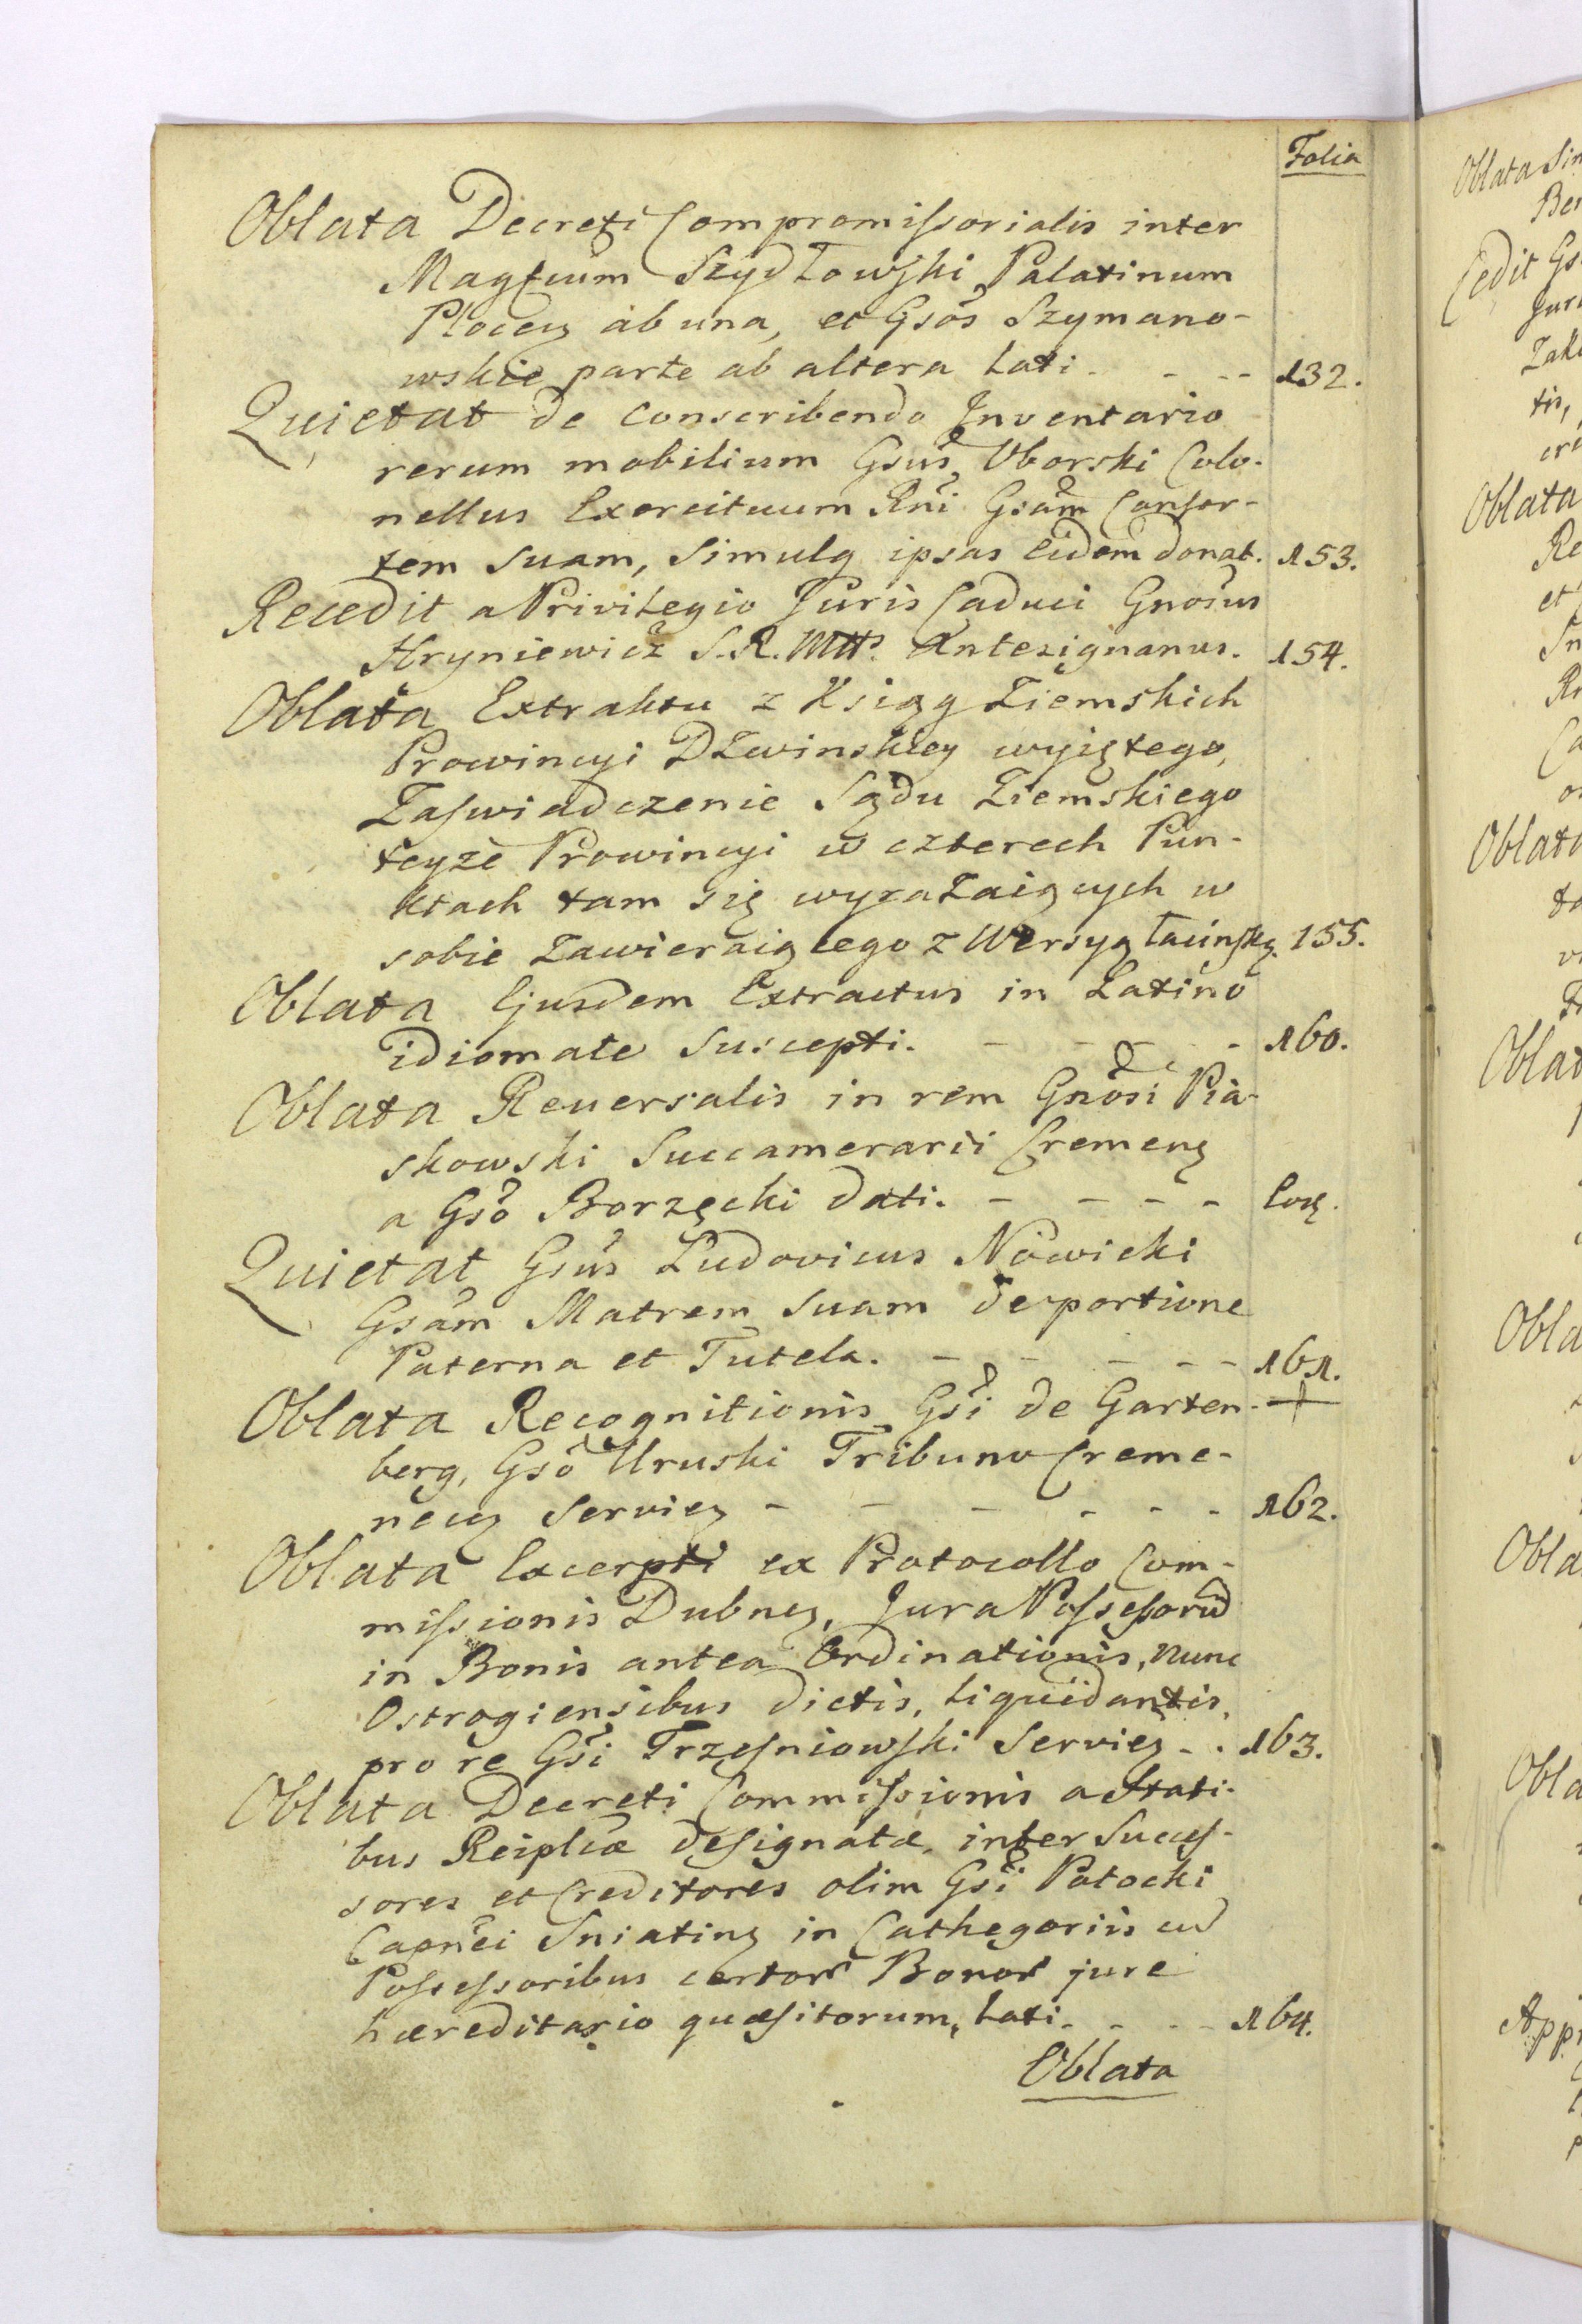 Folia
Oblata Decreti Compromissorialis inter
Magfcum Szydłowski Palatinum
Plocen ab una, et Gsos Szymano-
wskie parte ab altera lati. - - - 132.
Quietat de conscribendo Inventario
rerum mobilium Gsus Oborski Colo-
nellus Exercituum Rni Gsam Consor-
tem suam, simulq ipsas Eidem donat. 153.
Recedit a Privilegio Juris Caduci Gnosus
Hryniewicz S. R. Mttis Antesignanus. 154.
Oblata Extraktu z Ksiąg Ziemskich
Prowincyi Dźwinskiey wyiętego,
Zaswiadczenie Sądu Ziemskiego
teyże Prowincyi w czterech Pun-
ktach tam się wyrażaiących w
sobie zawieraiącego z Wersyą łacinską. 155.
Oblata Ejusdem Extractus in Latino
idiomate suscepti. - - - - 160.
Oblata Reversalis in rem Gnosi Pia-
skowski Succamerarii Cremen
a Gso Borzęcki dati. - - - - Eod.
Quietat Gsus Ludovicus Nowicki
Gsam Matrem suam de portione
Paterna et Tutela. - - - - - 161.
Oblata Recognitionis Gsi de Garten-
berg, Gso Uruski Tribuno Creme-
necen Servien - - - - - - 162.
Oblata Excerpti ex Protocollo Com-
missionis Dubnen, Jura Possessorū
in Bonis antea Ordinationis, nunc
Ostrogiensibus dictis, liquidantis,
pro re Gsi Trzesniowski Servien - . 163.
Oblata Decreti Commissionis a Stati-
bus Reiplicæ designatæ, inter Succes-
sores et Creditores olim Gsi Potocki
Capnei Sniatin in Cathegoriis cū
Possessoribus certor Bonor jure
hæreditario quæsitorum, lati. - - - 164.
Oblata
Oblata
Cedit
Oblata